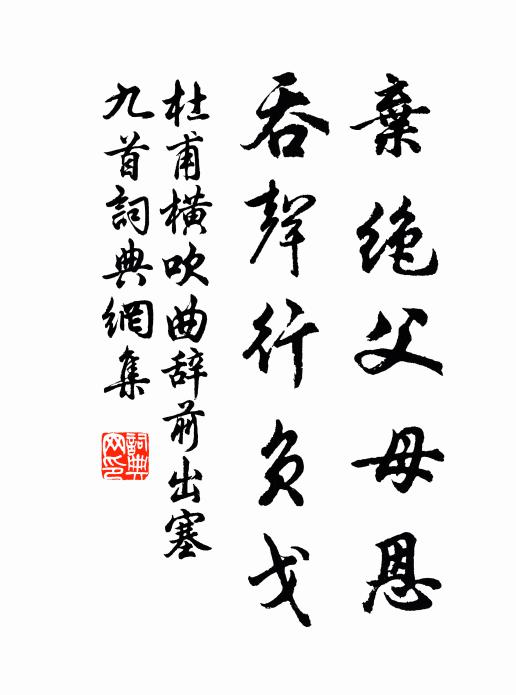 棄絕父母恩
吞聲行負戈
杜甫橫吹曲辞前出塞
九首詞典網集
詞典
网印